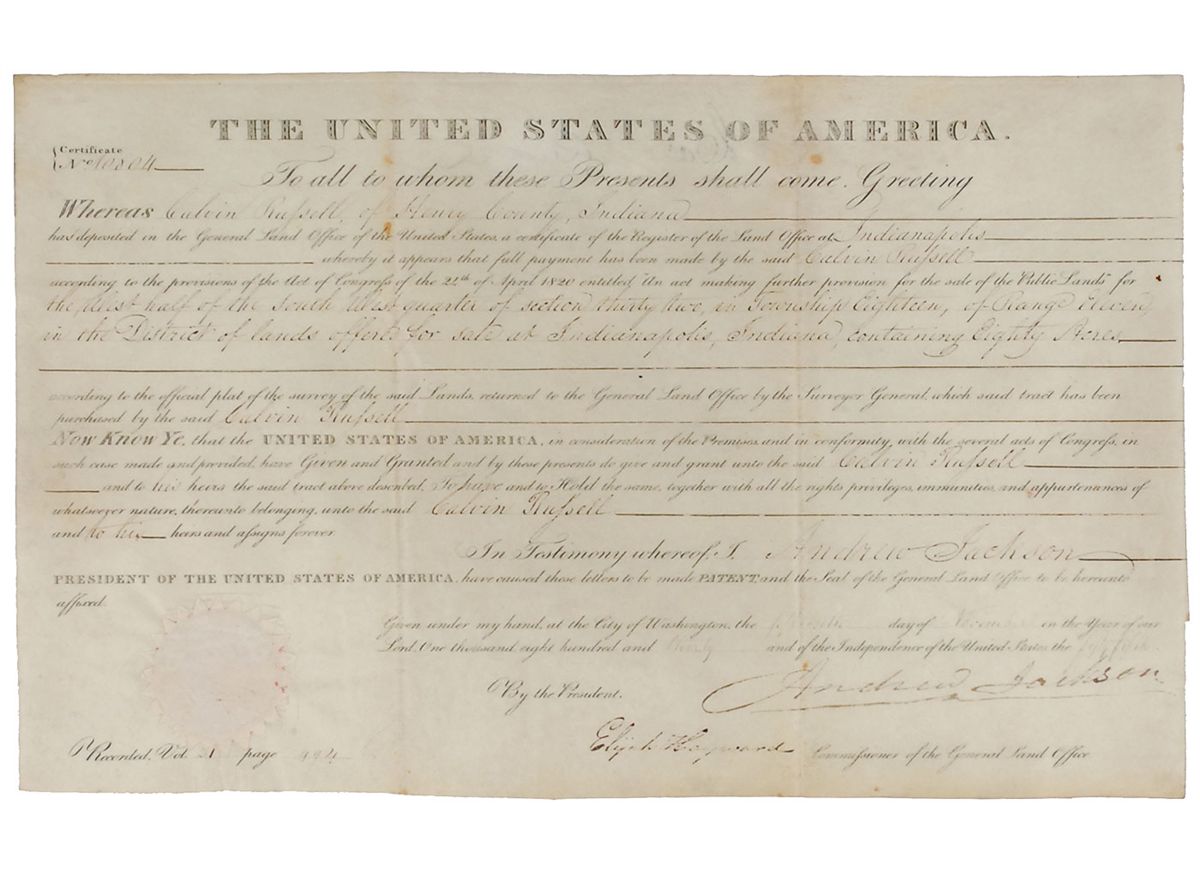 THE UNITED STATES OF AMERICA.
Certificate
No. 10804
To all to whom these Presents shall come, Greeting
Whereas Calvin Russell, of Henry County, Indiana
has deposited in the General Land Office of the United States, a certificate of the Register of the Land Office at Indianapolis
whereby it appears that full payment has been made by the said Calvin Russell
according to the provisions of the Act of Congress of the 24th of April 1820 entitled "An act making further provision for the sale of the Public Lands" for
the West half of the South West quarter of section thirty two, in Township Eighteen, of Range Eleven,
in the District of lands offered for sale at Indianapolis, Indiana, containing Eighty Acres
according to the official plat of the survey of the said Lands, returned to the General Land Office by the Surveyor General, which said tract has been
purchased by the said Calvin Russell
Now Know Ye, that the UNITED STATES OF AMERICA, in consideration of the Premises, and in conformity, with the several acts of Congress, in
such case made and provided, have Given and Granted and by these presents do give and grant unto the said Calvin Russell
and to his heirs the said tract above described, To have and to Hold the same, together with all the rights privileges, immunities, and appurtenances of
whatsoever nature, thereunto belonging, unto the said Calvin Russell
and to his heirs and assigns forever
In Testimony whereof, I, Andrew Jackson
PRESIDENT OF THE UNITED STATES OF AMERICA, have caused these letters to be made PATENT and the Seal of the General Land Office to be hereunto
affixed.
Given under my hand, at the City of Washington, the day of in the Year of our
Lord One thousand eight hundred and thirty and of the Independence of the United States, the
By the President. Andrew Jackson
Elijah Hayward Commissioner of the General Land Office
Recorded, Vol page